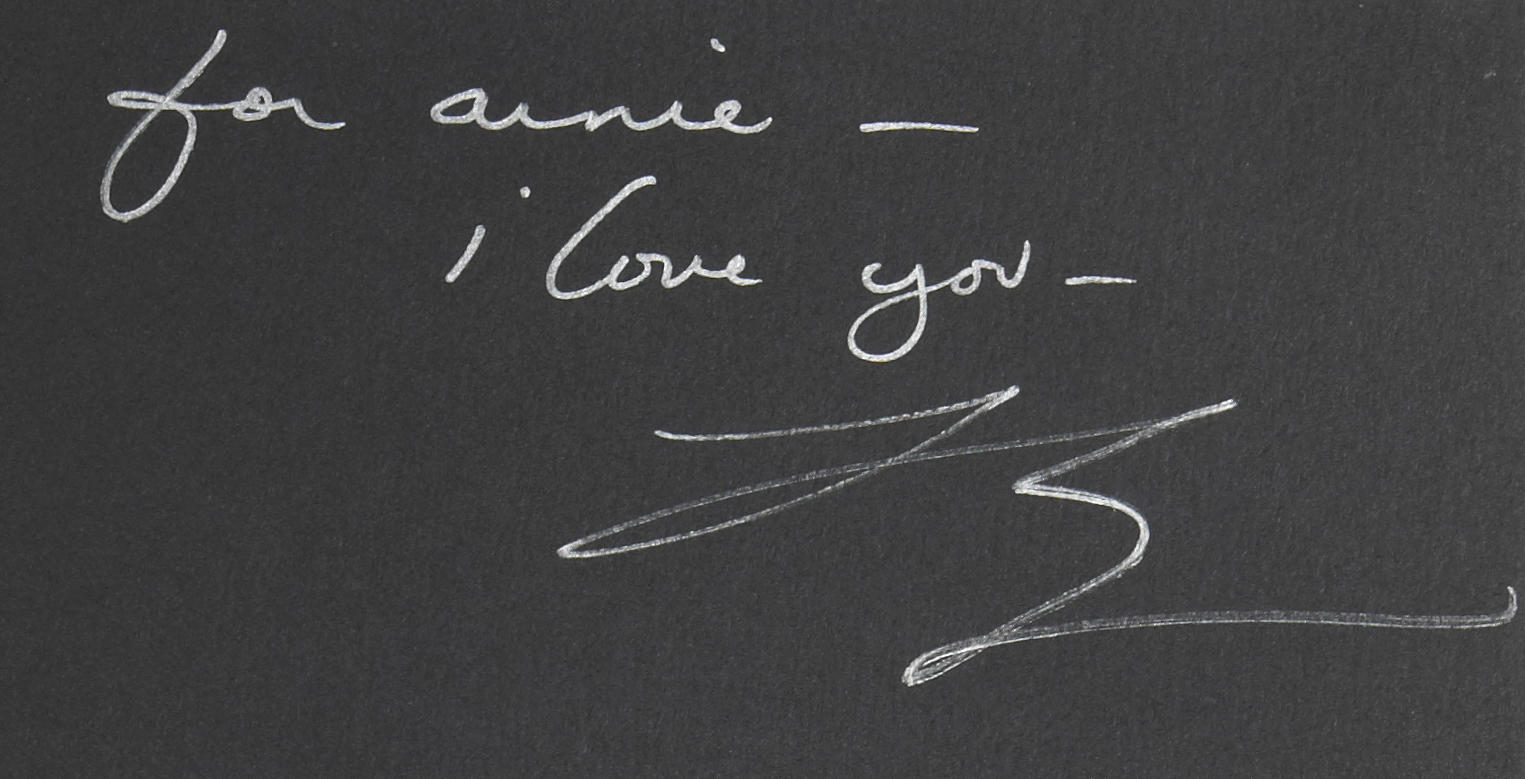 for arnie —
i love you —